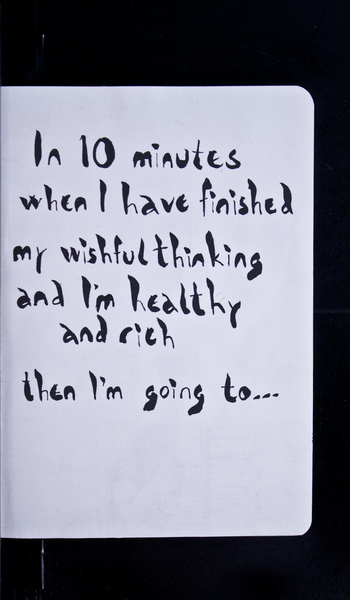 In 10 minutes
when I have finished
my wishful thinking
and I'm healthy
and rich
then I'm going to...